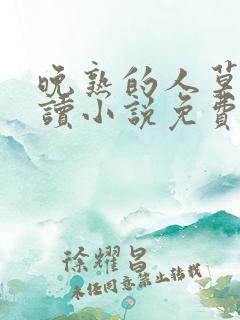 晚熟的人莫
讀小说免費
徐耀昌
未经同意禁止转载